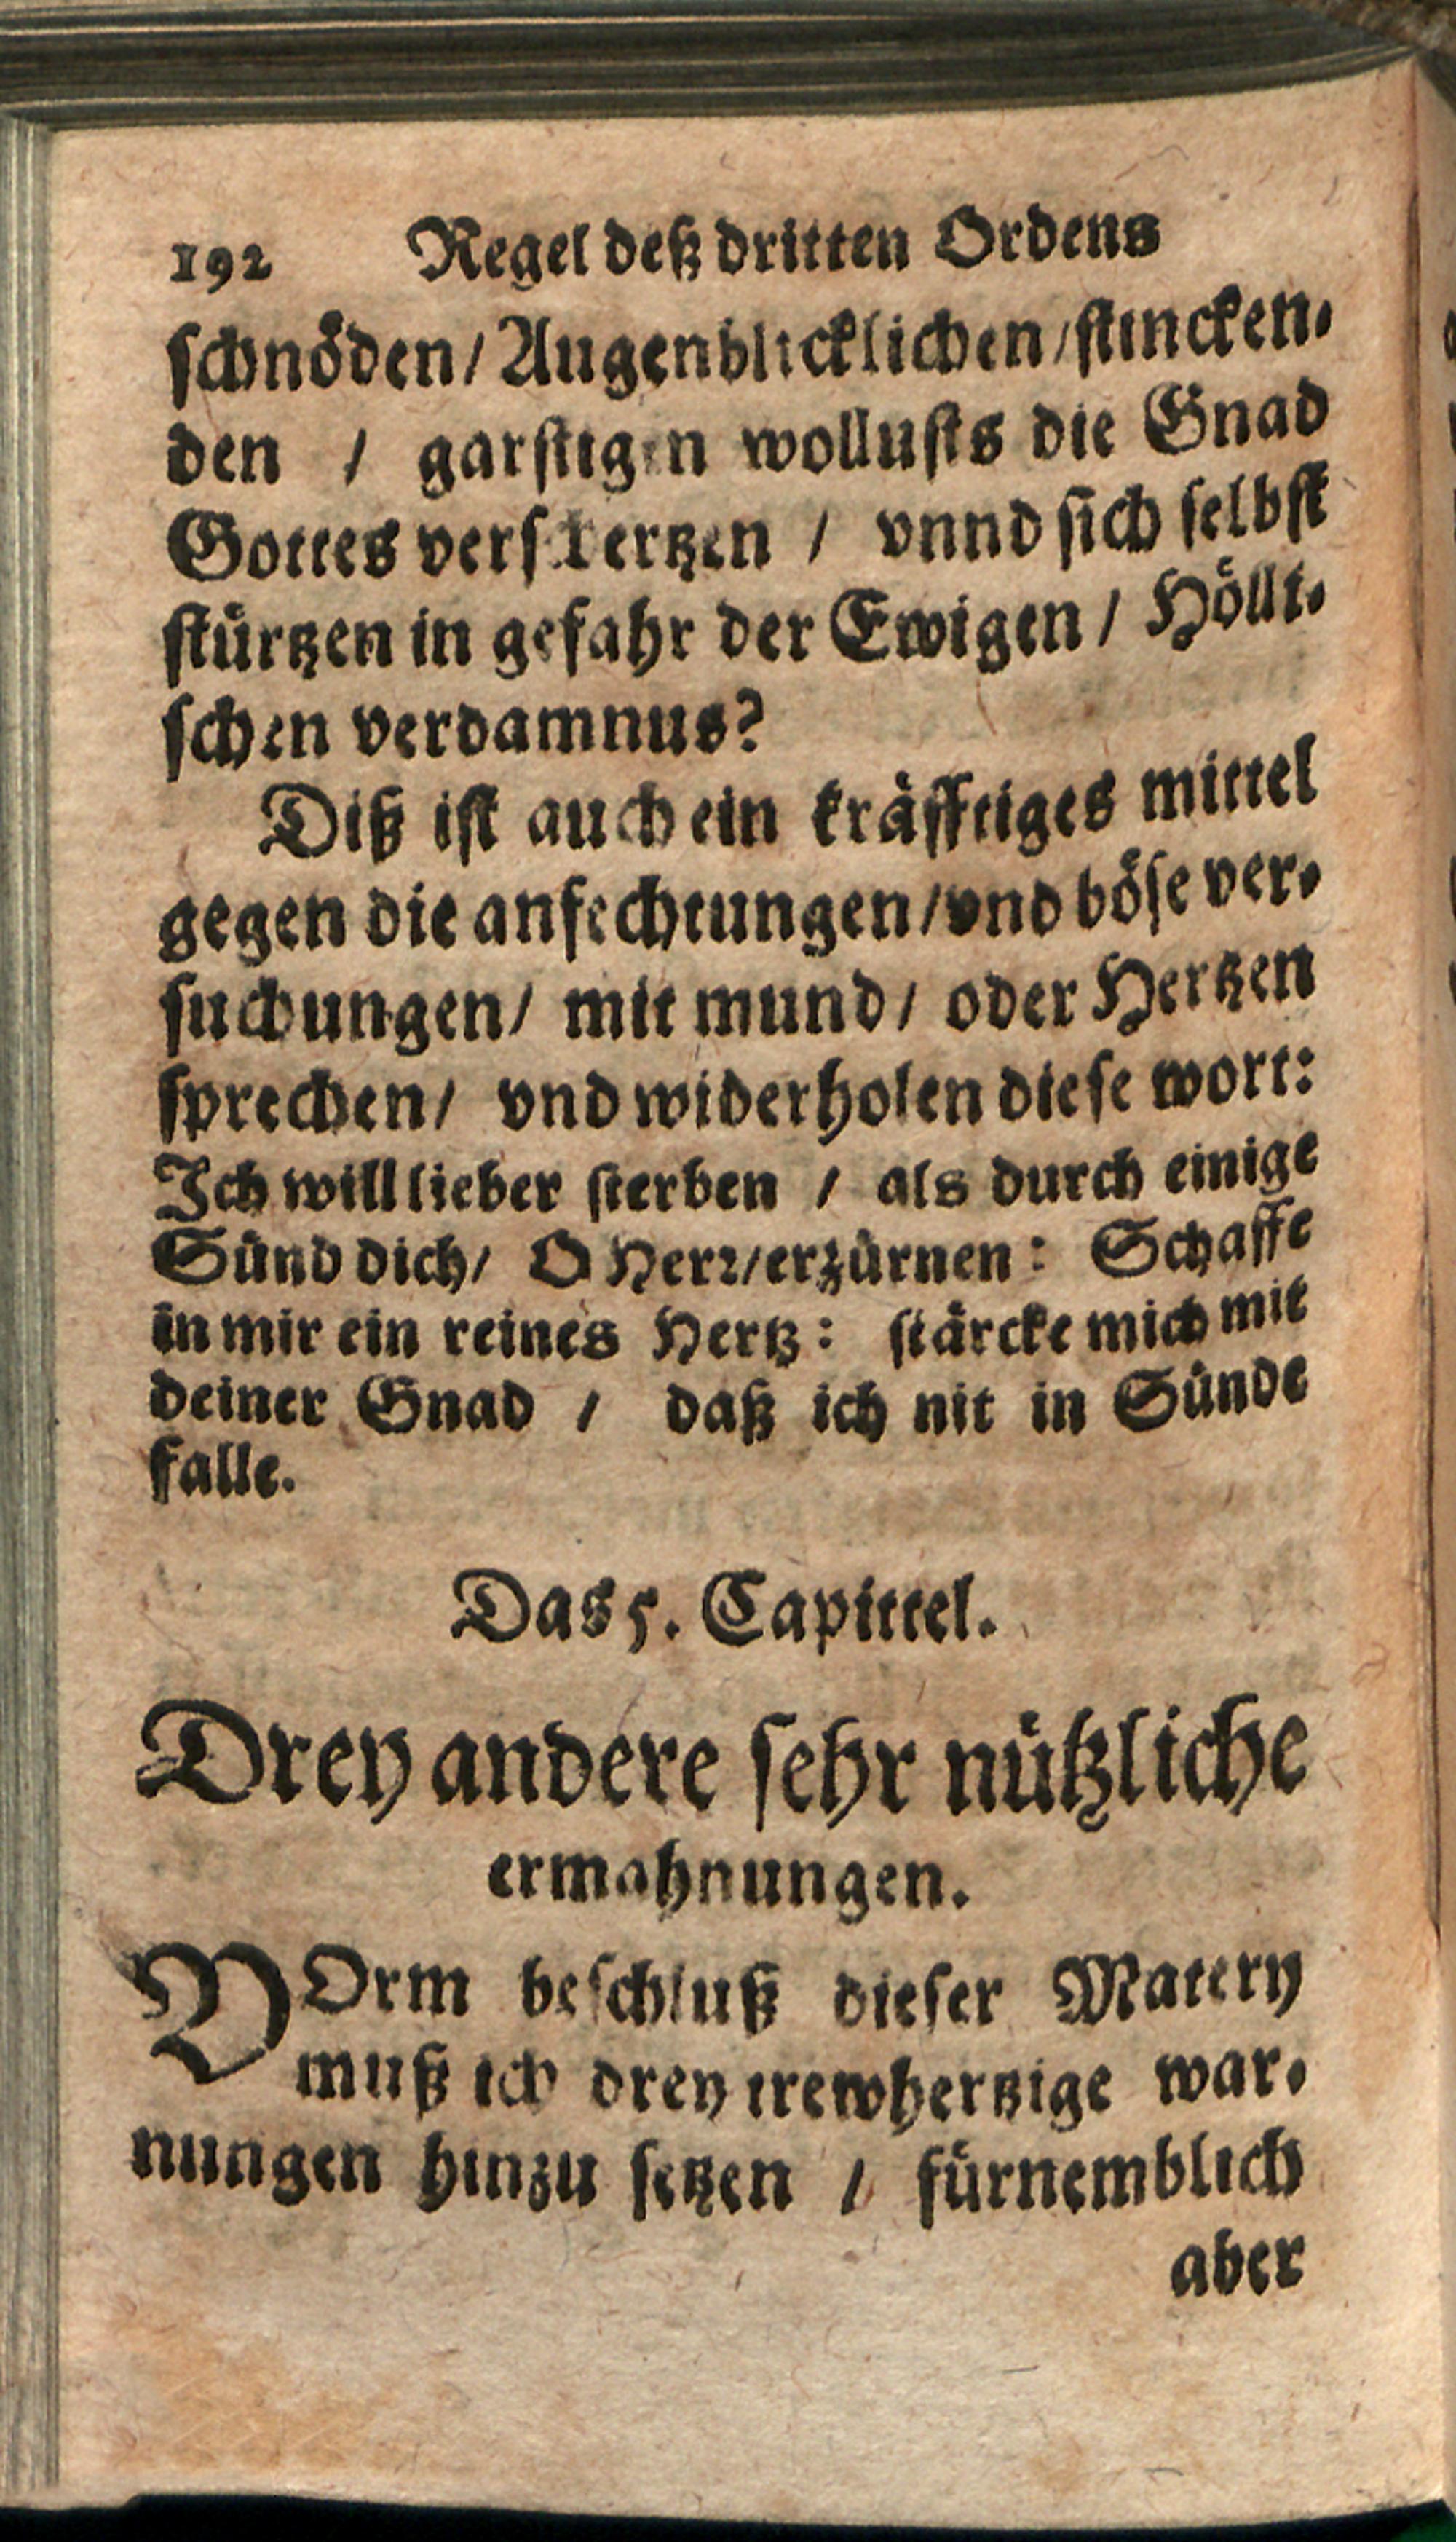 192 Regel deß dritten Ordens
schnöden / Augenblicklichen / stincken-
den / garstigen wollusts die Gnad
Gottes verschertzen / vnnd sich selbst
stürtzen in gefahr der Ewigen / Hölli-
schen verdamnus?
Diß ist auch ein kräfftiges mittel
gegen die anfechtungen / vnd böse ver-
suchungen / mit mund / oder Hertzen
sprechen / vnd widerholen diese wort:
Ich will lieber sterben / als durch einige
Sünd dich / O Herr / erzürnen: Schaffe
in mir ein reines Hertz: stärcke mich mit
deiner Gnad / daß ich nit in Sünde
falle.
Das 5. Capittel.
Drey andere sehr nützliche
ermahnungen.
VOrm beschluß dieser Matery
muß ich drey trewhertzige war-
nungen hinzu setzen / fürnemblich
aber